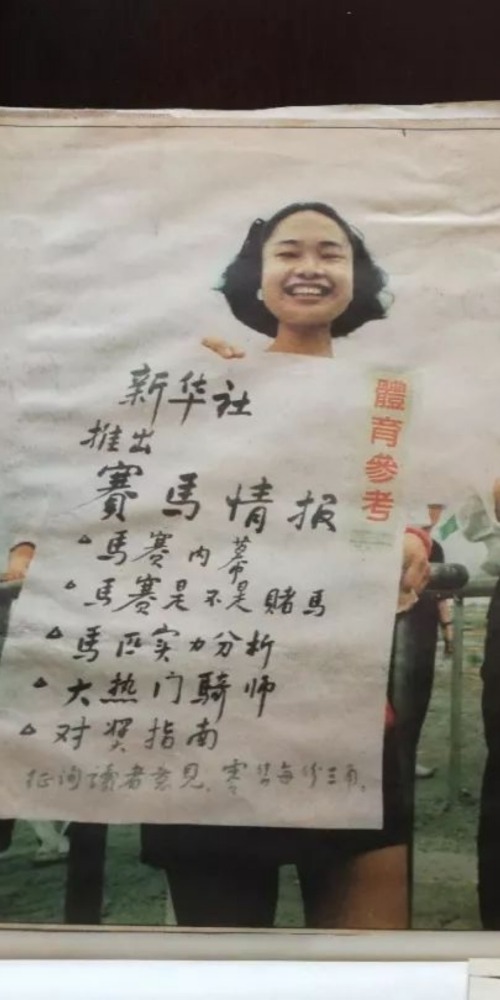 新华社
推出
賽馬情报
體育參考
馬賽内幕
馬賽是不是賭馬
馬匹实力分析
大热门騎师
对奖指南
征询讀者意見,零售每份三角。